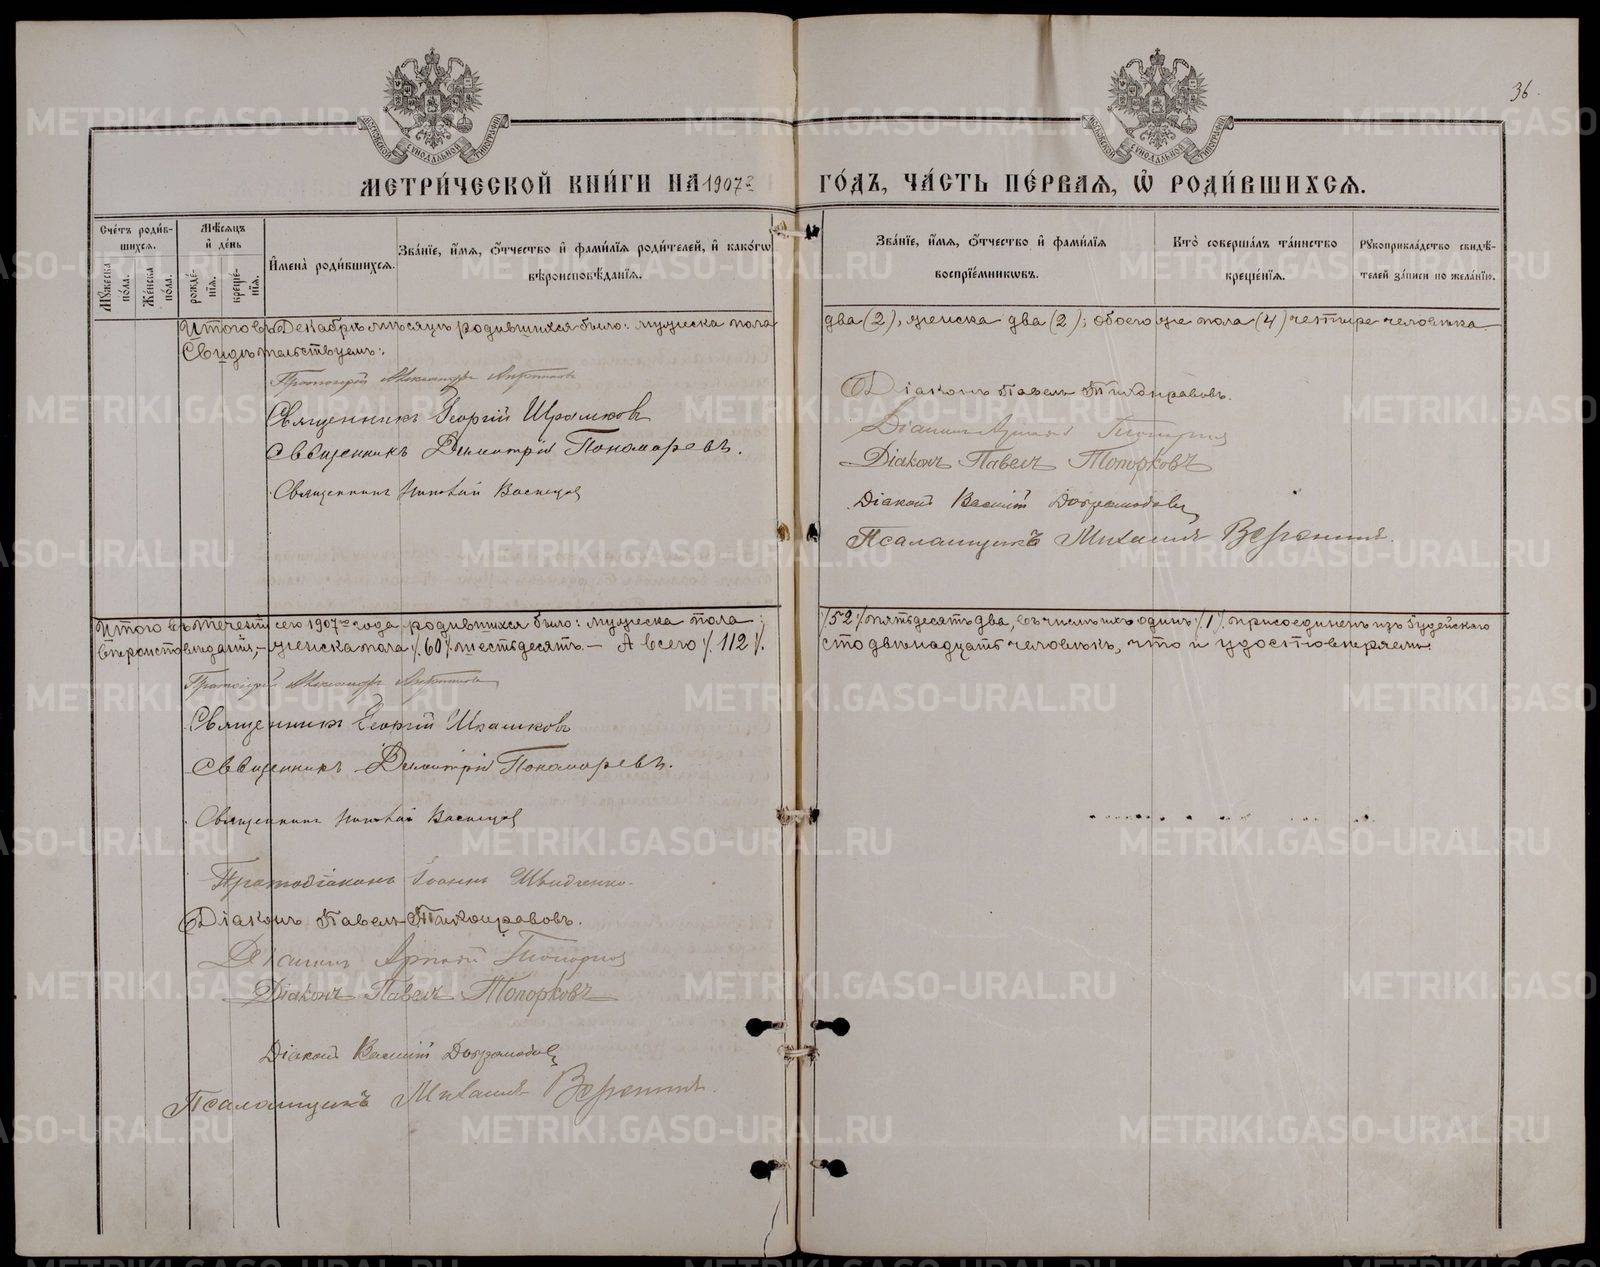 36.
МОСКОВСКОЙ СѴНОДАЛЬНОЙ ТИПОГРАФІИ
МОСКОВСКОЙ СѴНОДАЛЬНОЙ ТИПОГРАФІИ
МЕТРИ́ЧЕСКОЙ КНИ́ГИ НА 1907 г. ГО́ДЪ, ЧА́СТЬ ПЕ́РВАѦ, Ѡ҆ РОДИ́ВШИХСѦ.
Сче́тъ роди́в-
шихсѧ.
Мꙋ́жеска по́ла.
Же́нска по́ла.
Мѣ́сѧцъ
и҆ де́нь
рожде́-
нїѧ.
креще́-
нїѧ.
И҆мена̀ роди́вшихсѧ.
Зва́нїе, и҆́мѧ, ѻ҆́тчество и҆ фами́лїѧ роди́телей, и҆ како́гѡ
вѣроисповѣ́данїѧ.
Зва́нїе, и҆́мѧ, ѻ҆́тчество и҆ фами́лїѧ
воспрїе́мникѡвъ.
Кто̀ соверша́лъ та́инство
креще́нїѧ.
Рꙋкоприкла́дство свидѣ́-
телей за́писи по жела́нїю.
Итого въ Декабрѣ мѣсяцѣ родившихся было: мужеска пола два (2), женска два (2); обоего же пола (4) четыре человѣка
Свидѣтельствуемъ:
Протоіерей Александръ
Священникъ Георгій
Священникъ Димитрій Пономаревъ.
Священникъ Николай Васнецов
Діаконъ Павелъ Тихонравовъ.
Діаконъ Топорков
Діаконъ Павелъ Топорковъ
Діаконъ Василій
Псаломщикъ Михаилъ
Итого въ теченіи сего 1907 го года родившихся было: мужеска пола: /52/ пятьдесятъ два, въ числѣ ихъ одинъ /1/ присоединенъ изъ Іудейскаго
вѣроисповѣданія, – женска пола /60/ шестьдесятъ. – А всего /112/. сто двѣнадцать человѣкъ, что и удостовѣряемъ
Протоіерей Александръ
Священникъ Георгій
Священникъ Димитрій Пономаревъ.
Священникъ Николай Васнецов
Протодіаконъ Іоаннъ
Діаконъ Павелъ Тихонравовъ.
Діаконъ Топорков
Діаконъ Павелъ Топорковъ
Діаконъ Василій
Псаломщикъ Михаилъ
METRIKI.GASO-URAL.RU